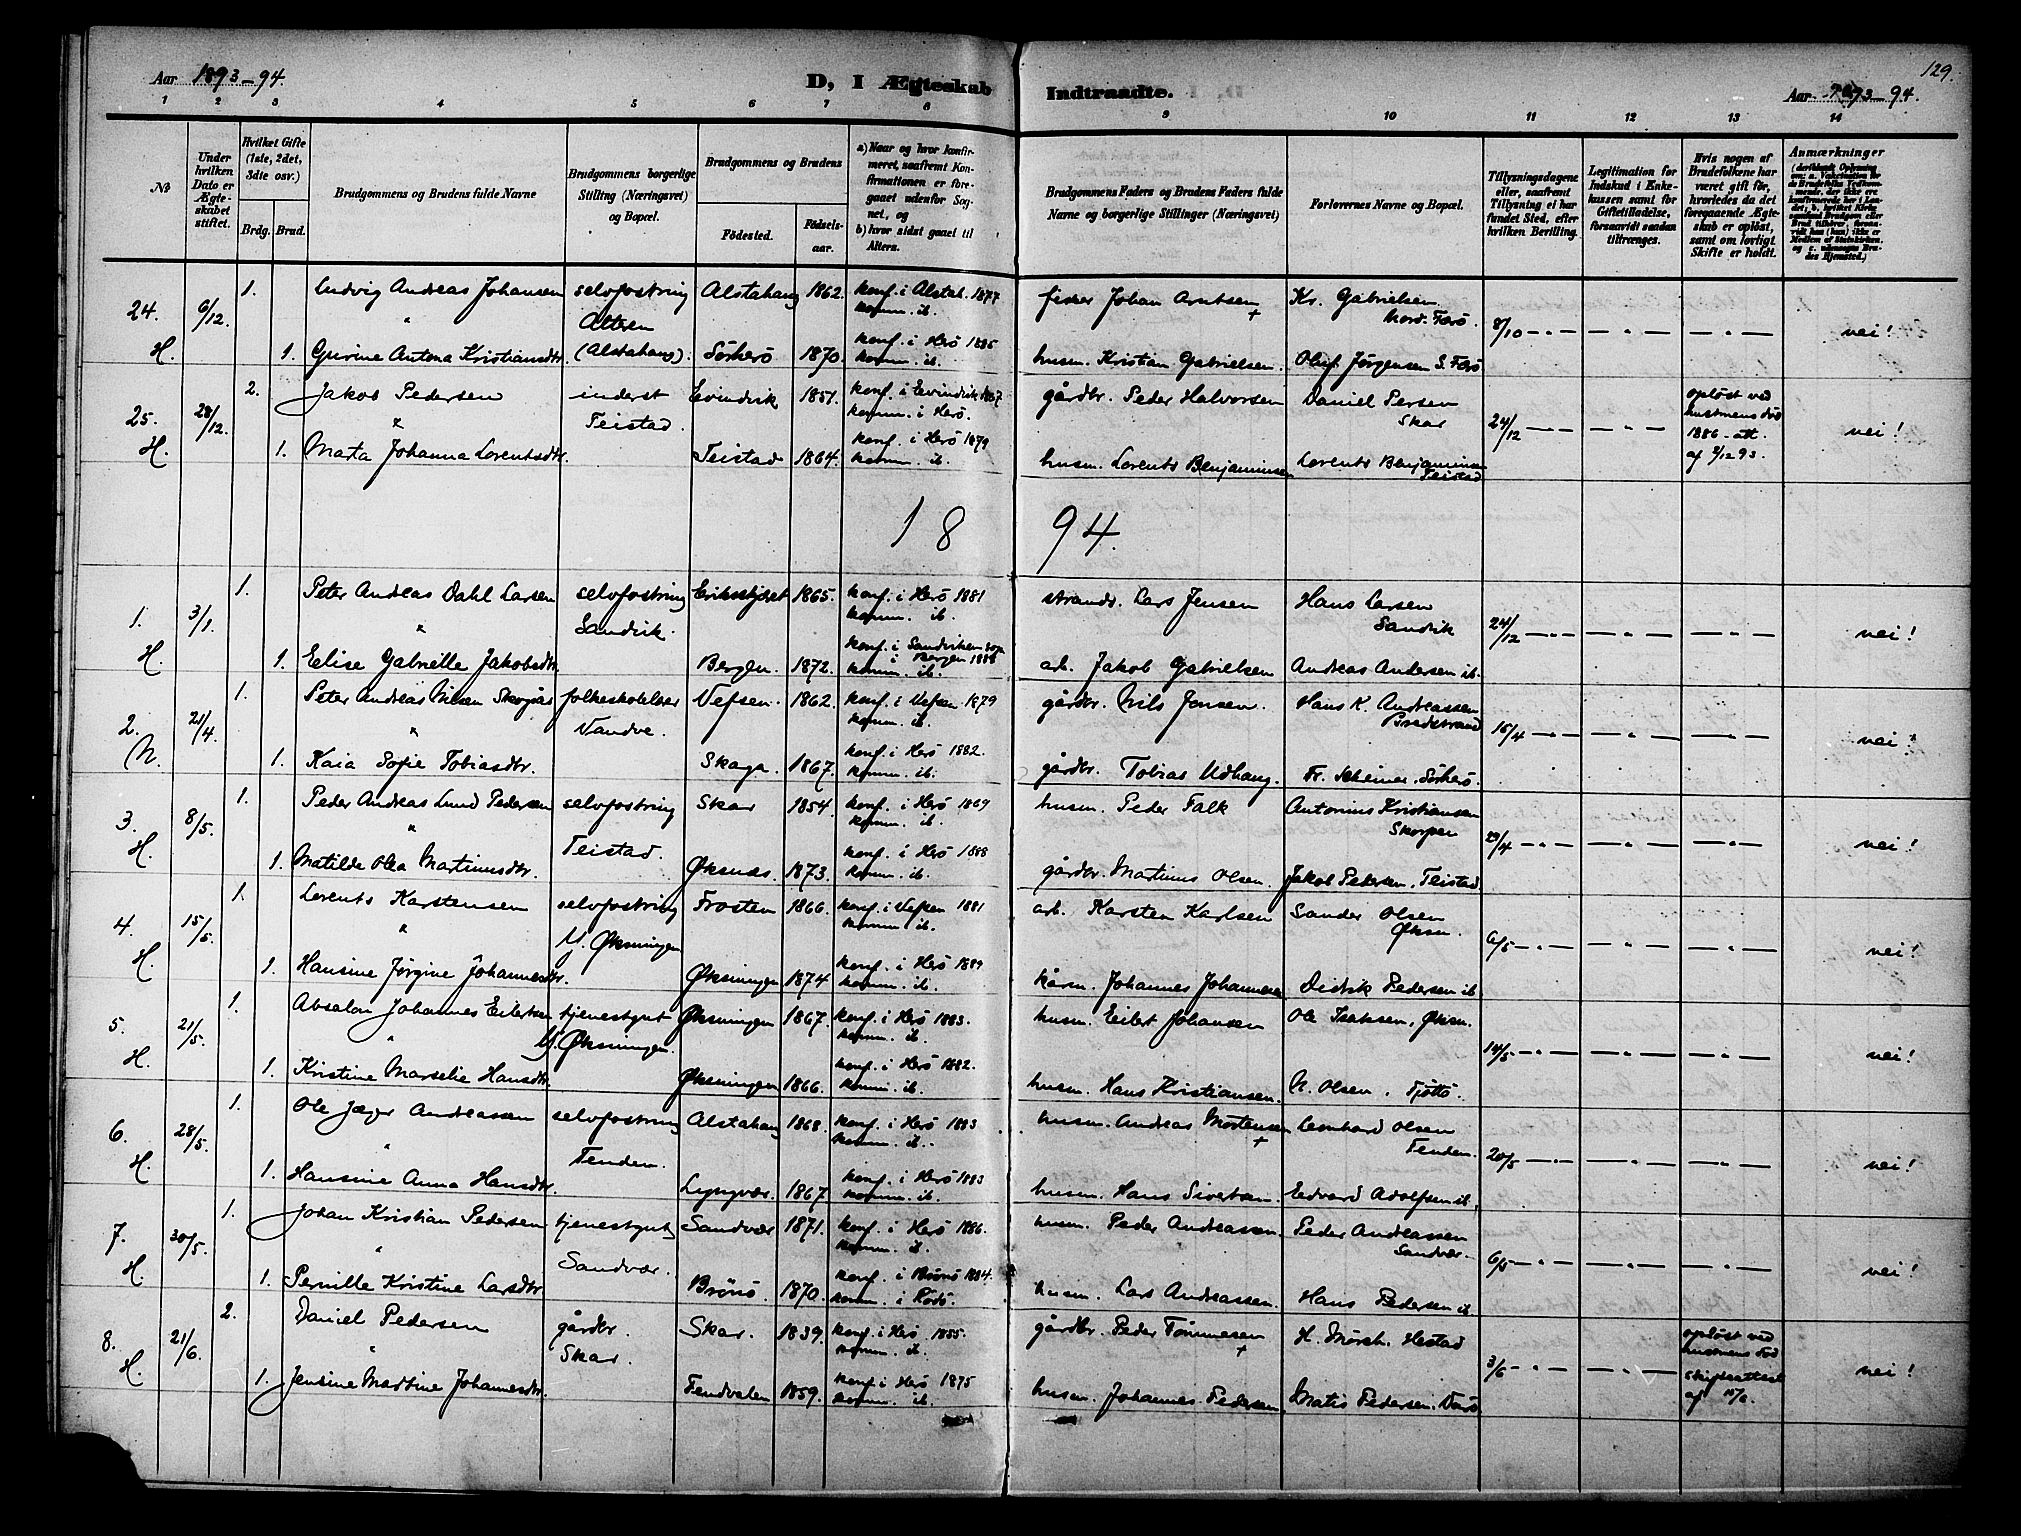 129.
Aar 1893-94.
D, I Ægteskab Indtraadte.
Aar 1893-94.
1 2 3 4 5 6 7 8 9 10 11 12 13 14
№
Under hvilken Dato er Ægteskabet stiftet.
Hvilket Gifte (1ste, 2det, 3die osv.)
Brdg. Brud.
Brudgommens og Brudens fulde Navne
Brudgommens borgerlige Stilling (Næringsvei) og Bopæl.
Brudgommens og Brudens
Fødested.
Fødselsaar.
a) Naar og hvor konfirmeret, saafremt Konfirmationen er foregaaet udenfor Sognet, og
b) hvor sidst gaaet til Alters.
Brudgommens Faders og Brudens Faders fulde Navne og borgerlige Stillinger (Næringsvei)
Forlovernes Navne og Bopæl.
Tillysningsdagene eller, saafremt Tillysning ei har fundet Sted, efter hvilken Bevilling.
Legitimation for Indskud i Enkekassen samt for Giftetilladelse, forsaavidt saadan tiltrænges.
Hvis nogen af Brudefolkene har været gift før, hvorledes da det foregaaende Ægteskab er opløst, samt om lovligt Skifte er holdt.
Anmærkninger
24. 6/12. 1. Ludvig Andreas Johansen selvfostring Alstahaug 1862. konf. i Alstah. 1877 fisker Johan Arntsen + Kr. Gabrielsen
" Altren komm. ib. Nord. Færø 8/10 — " — — " — — " — nei!
H. 1. Gurine Antona Kristiansdtr. (Alstahaug). Sørherø 1870. konf. i Herø 1885 husm. Kristian Gabrielsen. Oluf Jørgensen S. Færø
komm. ib.
25. 28/12. 2. Jakob Pedersen inderst Evindvik 1851. konf. i Evindvik 1867 gårdbr. Peder Halvorsen Daniel Persen opløst ved
" Teistad. komm. i Herø. Skar 24/12 — " — — " — hustruens død
H. 1. Marta Johanna Lorentsdtr. Teistad 1864. konf. i Herø 1879 husm. Lorents Benjaminsen Lorents Benjaminsen 1886 - att. nei!
komm. ib. Teistad af 9/12 93.
1894.
1. 3/1. 1. Peter Andreas Dahl Larsen selvfostring 1865. konf. i Herø 1881 strands. Lars Jensen Hans Larsen
" Sandvik. komm. ib. Sandvik 24/12 — " — — " — — " — nei!
H. 1. Elise Gabrielle Jakobsdtr. Bergen. 1872. konf. i Sandviken sogn i Bergen 1888 arb. Jakob Gabrielsen Andreas Andersen ib.
komm. ib.
2. 21/4. 1. Peter Andreas Nilsen folkeskolelærer Vefsen. 1862. konf. i Vefsen 1879 gårdbr. Nils Jensen. Hans K. Andreassen
" Vandve. komm. ib. Bredstrand 15/4 — " — — " — — " — nei!
N. 1. Kaia Sofie Tobiasdtr. Skaga. 1867. konf. i Herø 1882. gårdbr. Tobias Udhaug. Fr. Sørherø.
komm. ib.
3. 8/5. 1. Peder Andreas Lund Pedersen selvfostring Skar 1854. konf. i Herø 1869 husm. Peder Falk Antonius Kristiansen
" Teistad. komm. ib. Skorpen 29/4 — " — — " — — " — nei!
H. 1. Matilde Olea Martinusdtr. Øksnæs. 1873. konf. i Herø 1888 gårdbr. Martinus Olsen. Jakob Pedersen, Teistad
komm. ib.
4. 15/5. 1. Lorents Karstensen selvfostring Frosten 1866. konf. i Vefsen 1881 arb. Karsten Karlsen Sander Olsen
" Y. Øksningen komm. ib. Øksn. 6/5 — " — — " — — " — nei!
H. 1. Hansine Jørgine Johannesdtr. Øksningen 1874 konf. i Herø 1889 kårm. Johannes Johannesen Didrik Pedersen ib.
komm. ib.
5. 21/5. 1. Absalon Johannes Eilertsen tjenestgut Øksningen 1867. konf. i Herø 1883. husm. Eilert Johansen Ole Isaksen, Øksn.
" Y. Øksningen. komm. ib. 14/5 — " — — " — — " — nei!
H. 1. Kristine Marselie Hansdtr. Øksningen 1866. konf. i Herø 1882. husm. Hans Kristiansen. N. Olsen. Tjøttø.
komm. ib.
6. 28/5. 1. Ole Jæger Andreassen selvfostring Alstahaug 1868. konf. i Herø 1883 husm. Andreas Mortensen + Leonhard Olsen
" Tenden. komm. ib. Tenden. 20/5 — " — — " — — " — nei!
H. 1. Hansine Anna Hansdtr. Lyngvær. 1867 konf. i Herø 1883 husm. Hans Sivertsen. Edvard Adolfsen ib.
komm. ib.
7. 30/5. 1. Johan Kristian Pedersen tjenestgut Sandvær 1871. konf. i Herø 1886. husm. Peder Andreassen. Peder Andreassen
" Sandvær. komm. ib. Sandvær. 6/5 — " — — " — — " — nei!
H. 1. Pernille Kristine Larsdtr. Brønø 1870. konf. i Brønø 1884. husm. Lars Andreassen. Hans Pedersen ib.
komm. i Rødø.
8. 21/6. 2. Daniel Pedersen gårdbr. Skar. 1839. konf. i Herø. 1855. gårdbr. Peder Tømmesen + H. Mørch. Hestad opløst ved
" Skar. komm. ib. 3/6 — " — — " — hustruens død
H. 1. Jensine Martine Johannesdtr. Tendvalen 1859. konf. i Herø 1875 husm. Johannes Pedersen. Matis Pedersen. skifteattest nei!
komm. ib. af 15/6.